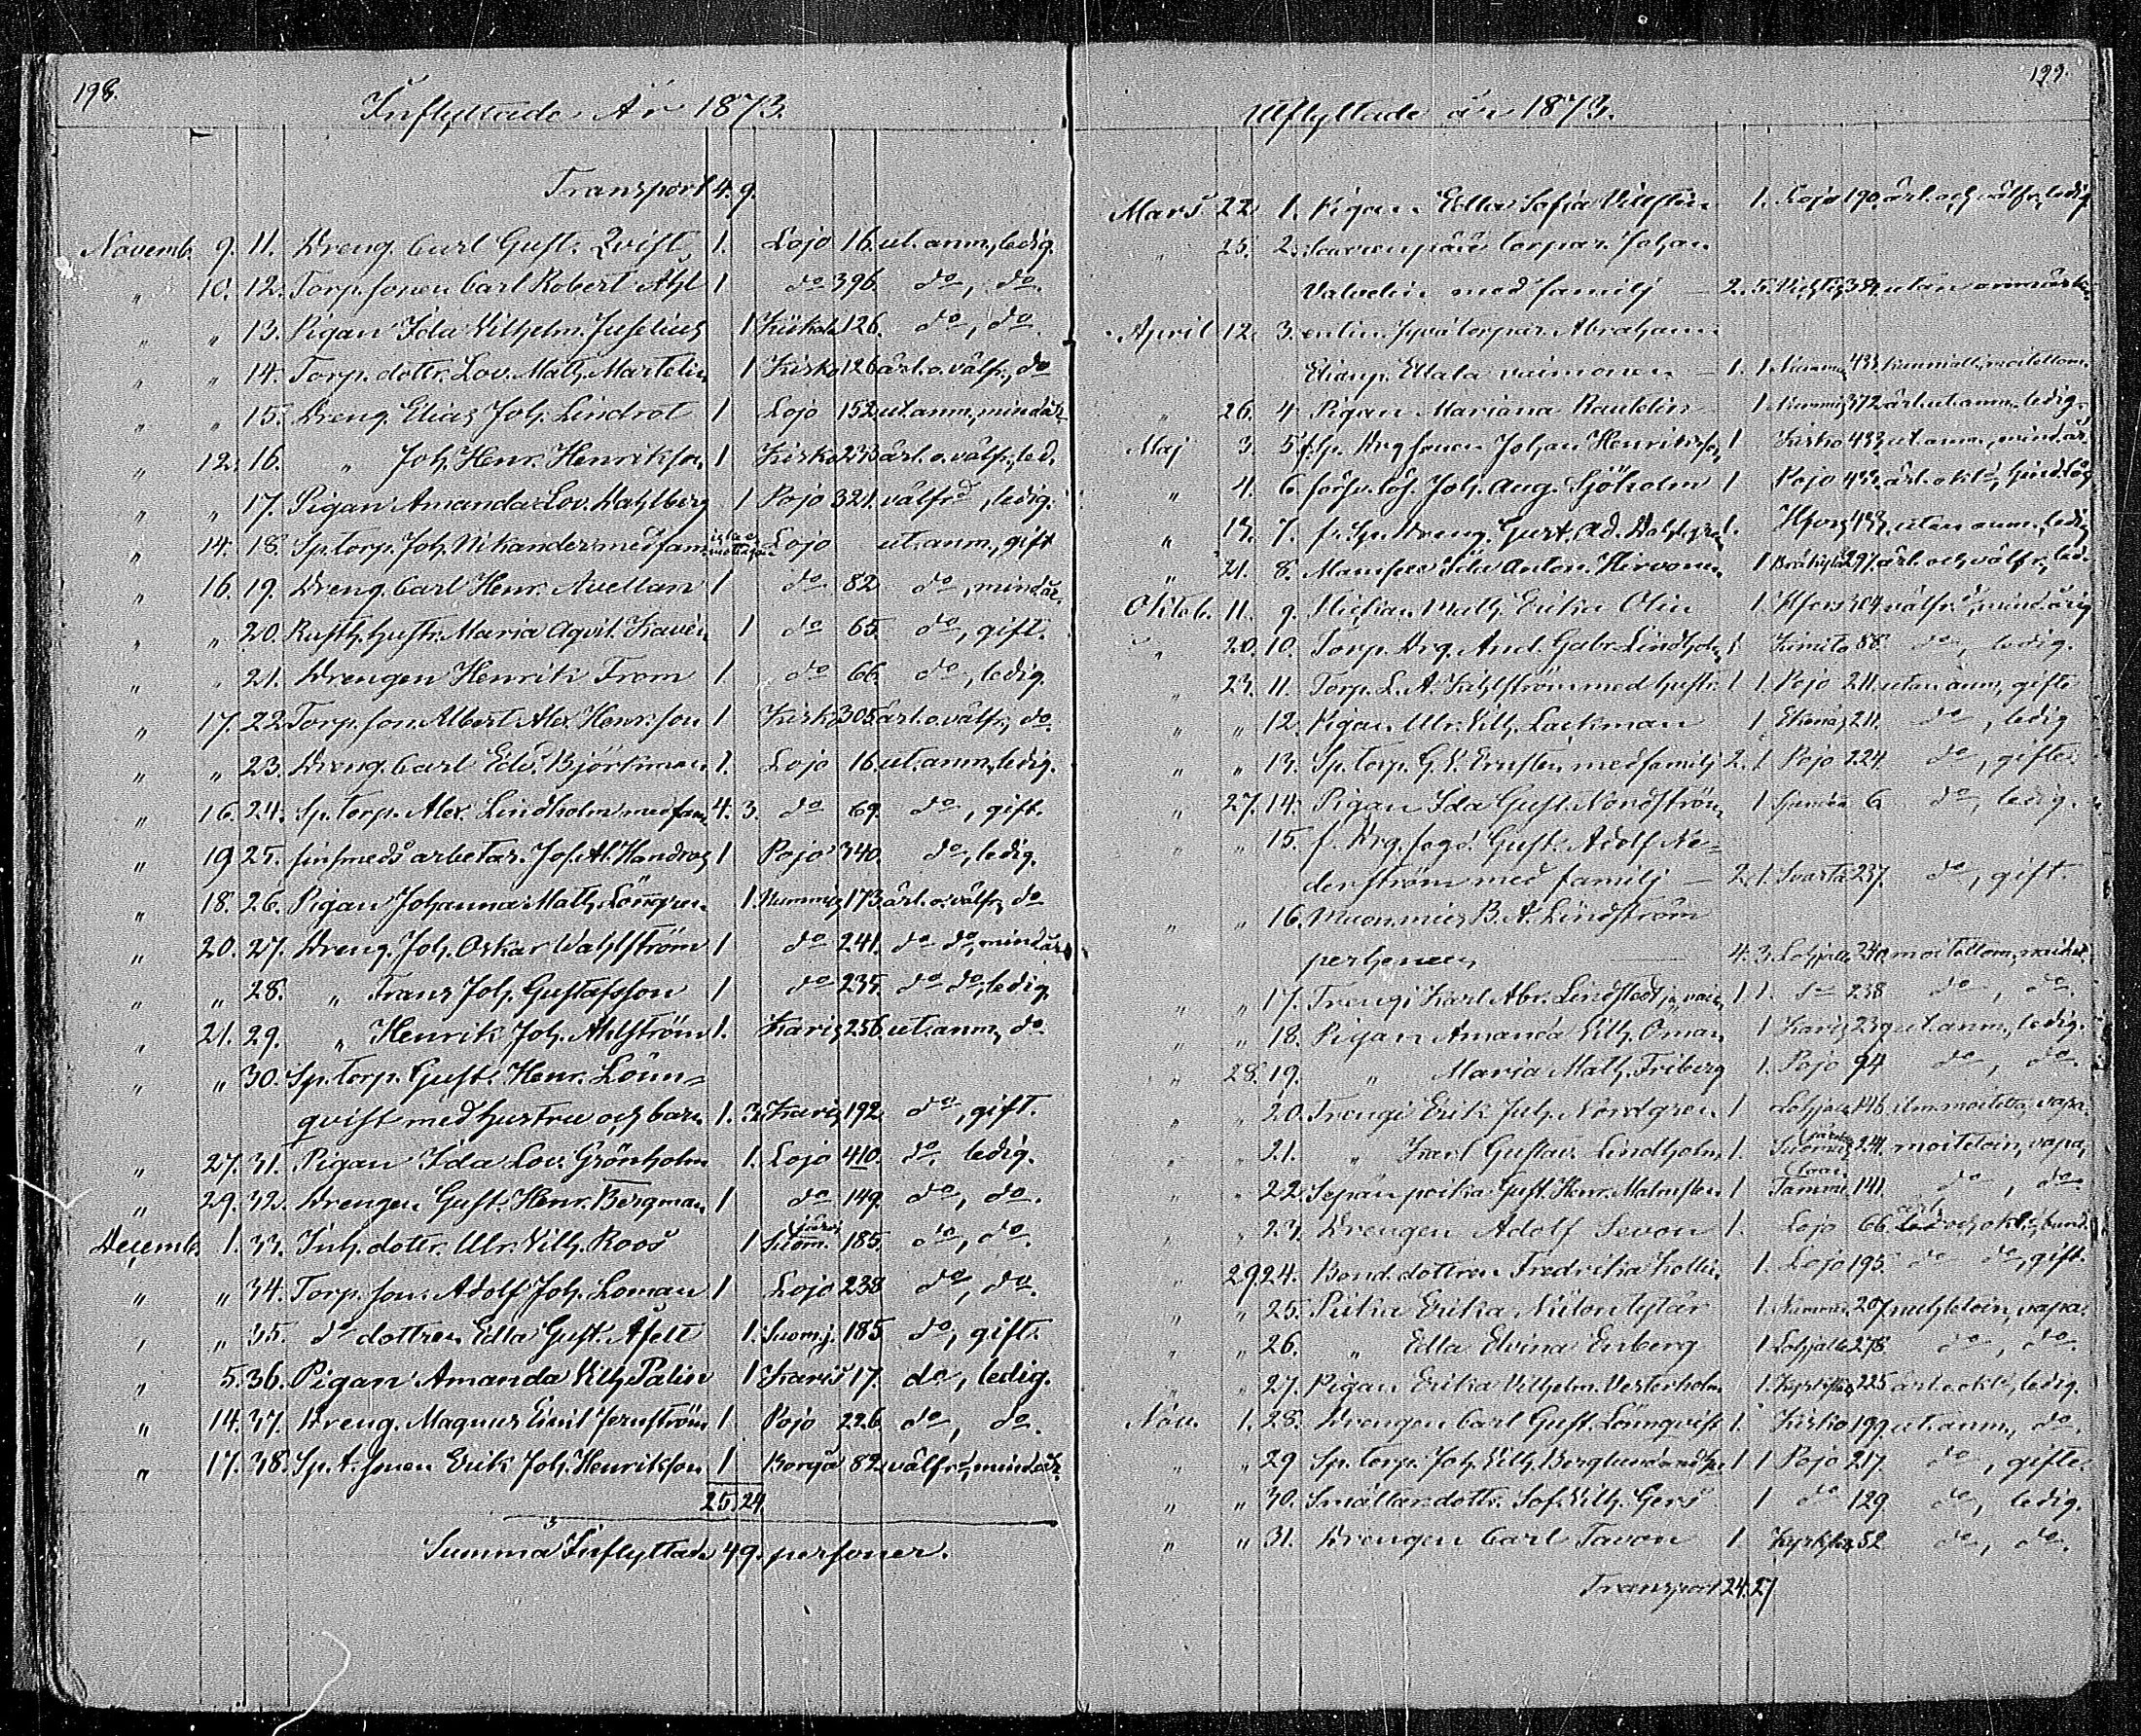 198.
Inflyttade År 1873.
Transport 4. 9.
Novemb. 9. 11. Dreng. Carl Gust. Qvist 1. Lojo 16. ut. anm., ledig.
" 10. 12. Torp. sonen Carl Robert Ahl 1 do 396. do, do.
" " 13. Pigan Ida Vilhelm. Juselius 1 Kiikala 126. do, do.
" " 14. Torp. dottr. Lov. Math. Martelin 1 Kisko 126 ärl. o. välfr., do
" " 15. Dreng. Elias Joh. Lindrot 1 Lojo 152. ut. anm., mindår.
" 12. 16. " Joh. Henr. Henriksson 1 Kisko 233 ärl. o. välfr., led.
" " 17. Pigan Amanda Lov. Dahlberg 1 Pojo 321. välfrd, ledig.
" 14. 18. Sp. torp. Joh. Nikander med fam. Lojo ut. anm., gift
" 16. 19. Dreng. Carl Henr. Avellan 1 do 82 do, mindår.
" " 20. Rusth. hustr. Maria Aqvil. Kavén 1 do 65 do, gift.
" " 21. Drengen Henrik From 1 do 66. do, ledig.
" 17. 22. Torp. son. Albert Alex. Henr. son 1 Kisko 305 ärl. o. välfr., do.
" " 23. Dreng. Carl Edv. Björkman 1. Lojo 16. ut. anm., ledig.
" 16. 24. Sp. torp. Alex. Lindholm med fam. 4. 3. do 69. do, gift.
" 19 25. finsmeds arbetar. Jos. Al. Handros 1 Pojo 340. do, ledig.
" 18. 26. Pigan Johanna Math. Löngren 1. Nummis 173. ärl. o. välfr., do
" 20. 27. Dreng. Joh. Oskar Wahlström 1 do 241. do do, mindår.
" " 28. " Frans Joh. Gustafsson 1 do 235. do do, ledig.
" 21. 29. " Henrik Joh. Ahlström 1. Karis 256 ut. anm., do
" " 30. Sp. torp. Gust. Henr. Lönn-
qvist med hustru och barn 1. 3. Karis 192. do, gift.
" 27. 31. Pigan Ida Lov. Grönholm 1. Lojo 410. do. ledig.
" 29. 32. Drengen Gust. Henr. Bergman 1 do 149. do, do.
Decemb. 1. 33. Inh. dottr. Ulr. Vilh. Roos 1 Suom. järvi 185. do, do.
" " 34. Torp. son. Adolf Joh. Loman 1 Lojo 238 do, do.
" " 35. do dottren Edla Gust. Aselt 1. Suomj. 185 do, gift.
" 5. 36. Pigan Amanda Vilh. Palin 1 Karis 17. do, ledig.
" 14. 37. Dreng. Magnus Emil Jernström 1 Pojo 226. do, do.
" 17. 38. Sp. t. sonen Erik Joh. Henriksson 1 Borgå 82. välfrd, mindår.
25. 24.
Summa Inflyttade 49. personer.
199.
Utflyttade år 1873.
Mars 22 1. Pigan Edla Sofia 1. Lojo 190. ärl. och välfr., ledig
" 25. 2. torpar. Johan
Valvelin med familj 2. 5. Vichtis 39. utan anmärkn.
April 12. 3. entin. torpar. Abraham
Edla vaimonen 1. 1. Nummis 433. moitettom.
" 26. 4. Pigan Mariana Rautelin 1 Nummis 372 ärl. ut. anm., ledig.
Maj 3. 5. f. Sp. drg sonen Johan Henriksson 1 Kisko 433. ut. anm., mindår.
" 4. 6. Joh. Aug. Sjöholm 1 Pojo 433. ärl. o. kld,
" 13. 7. f. Sp. Dreng. Gust. Ad. 1. Hfors 433. utan anm., ledig
" 21. 8. Mamsell Ida Anton. Hirvonen 1 297. ärl. och välfr., led.
Oktob. 11. 9. Math. Erika Olin 1. Hfors 304 välfrd, mindårig
" 20. 10. Torp. drg. And. Gabr. Lindholm 1 Kimito 88. do, ledig.
" 23. 11. Torp. L. A. Kihlström med hustr. 1 1. Pojo 211. utan anm., gifte
" " 12. Pigan Ulr. Vilh. Lackman 1 Ekenäs 211. do, ledig
" " 13. Sp. torp. G. V. Ernsten med familj 2. 1 Pojo 224. do, gifte.
" 27. 14. Pigan Ida Gust. Nordström 1 6. do, ledig.
" " 15. f. Drg. Gust. Adolf Ne-
derström med familj 2. 1. Svartå 237. do, gift.
" " 16. Muonmies B. A. Lindström
perheneen 4. 3. Lohjalle 240. moitettom.,
" " 17. Trengi Karl Abr. Lindstedt ja vaim. 1 1. do 238 do, do.
" " 18. Pigan Amanda Vilh. Öman 1 Karis 239. ut. anm., ledig.
" 28. 19. " Maria Math. Friberg 1. Pojo 94 do, do.
" " 20. Trengi Erik Joh. Nordgren 1 Lohjalle 146. ilm. moitetta, vapa.
" " 21. " Karl Gustav Lindholm 1. Suomus järvi 241. moitetoin, vapa,
" " 22. Sepän poika Gust. Henr. Malmsten 1 Tammi 141. do, do
" " 23. Drengen Adolf Sevon 1. Lojo 66. och okl.,
" 29. 24. Bond. dottren Fredrika Kollin 1. Lojo 195. do do, gift.
" " 25. Piika Erika Niilontytär 1. Nummis 207 nuhtetoin, vapa.
" " 26. " Edla Elvina Enberg 1 Lohjalle 278 do, do.
" " 27. Pigan Erika Vilhelm. Vesterholm 1. Kyrkslätt 225 ärl. o. kld, ledig.
Nov. 1. 28. Drengen Carl Gust. Lönnqvist 1. Kisko 199. ut. anm., do.
" " 29 Sp. torp. Joh. Vilh. Berglund 1 1 Pojo 217. do, gifte.
" " 30. dottr. Sof. Vilh. Gers 1 do 129 do, ledig.
" " 31. Drengen Carl Tavon 1. Kyrkslätt 52 do, do.
Transport 24. 27